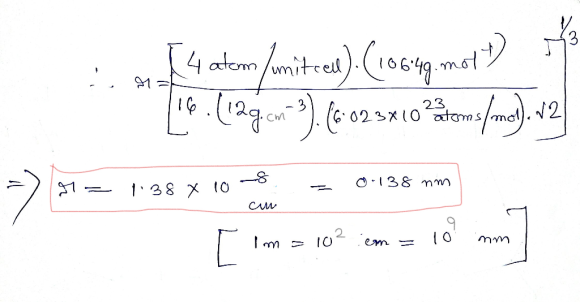 ∴ r = [ (4 atom/unit cell).(106.4g.mol⁻¹) / 16.(12g.cm⁻³).(6.023×10²³ atoms/mol).√2 ]^1/3
=> r = 1.38 × 10⁻⁸ cm = 0.138 nm
[ 1m = 10² cm = 10⁹ nm ]